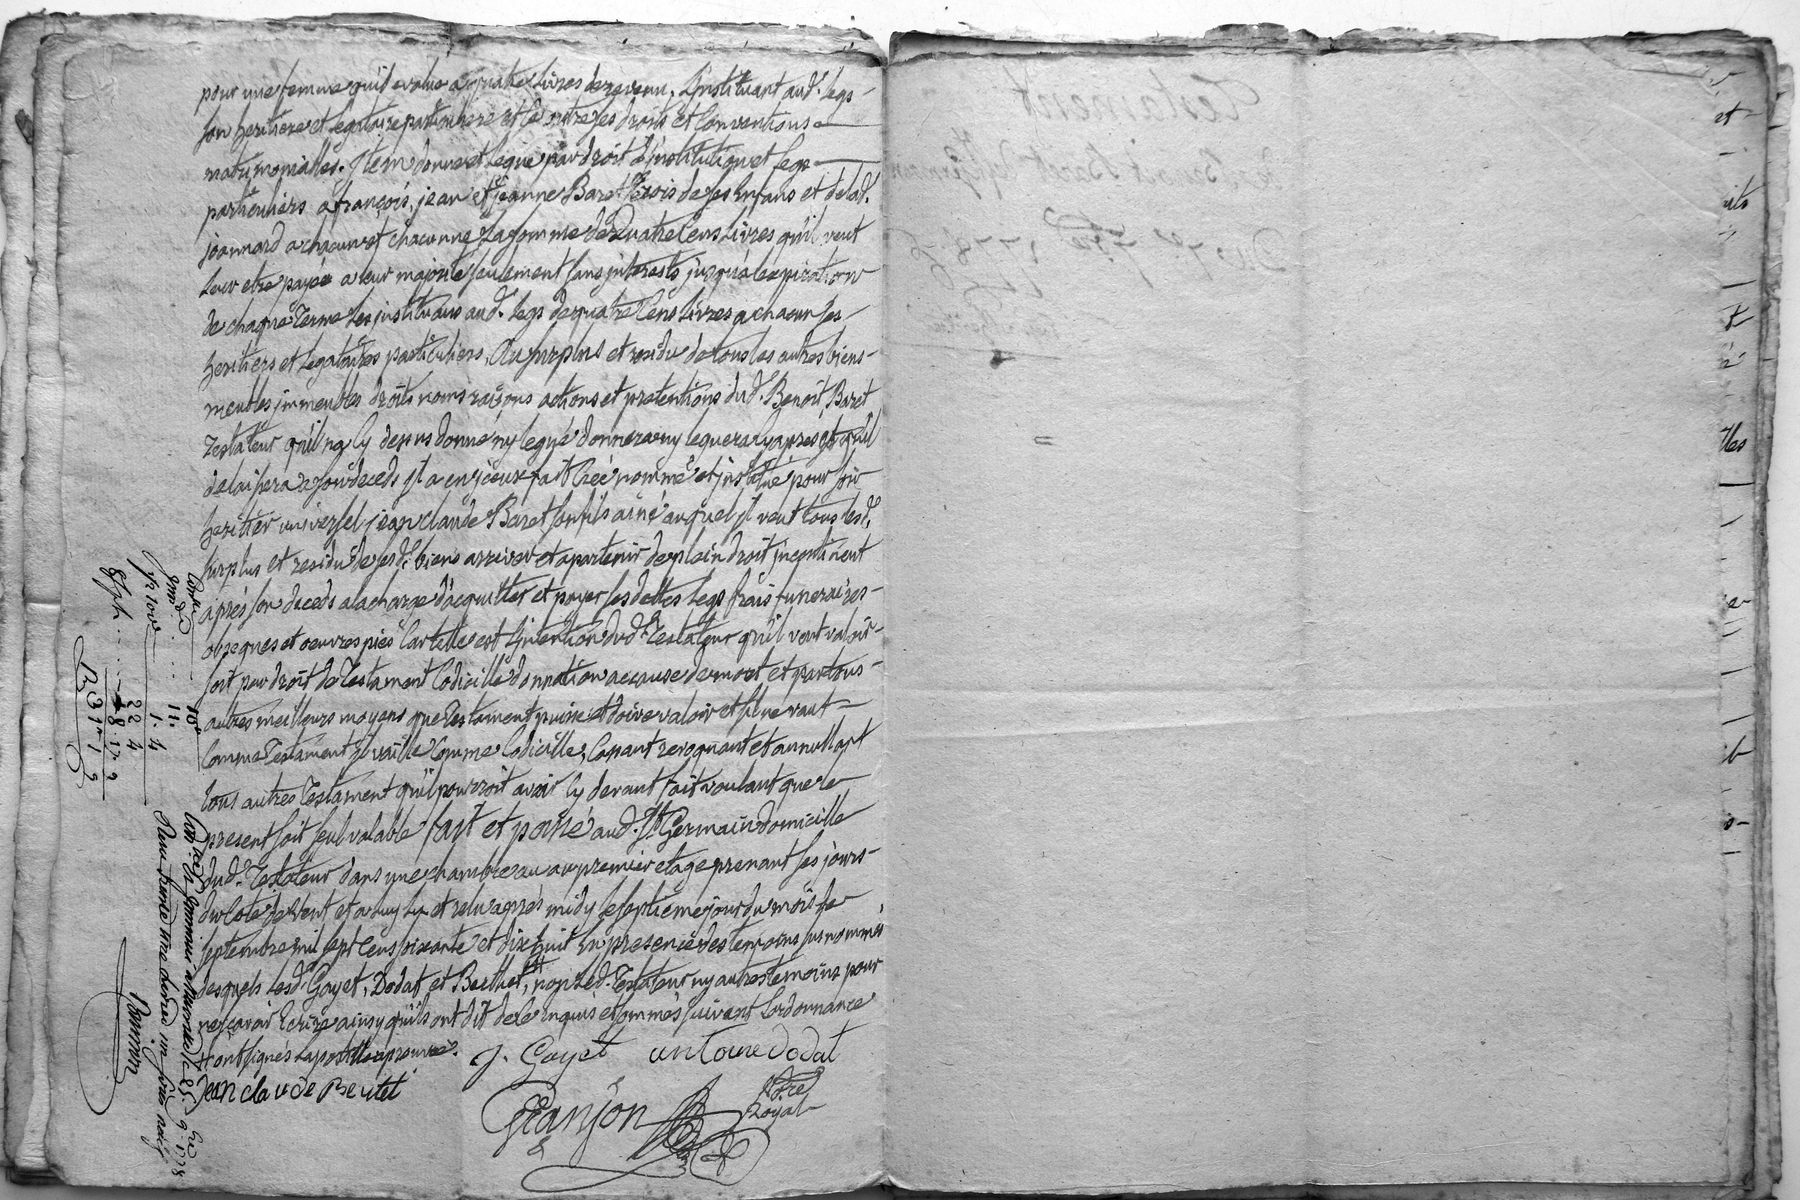 pour une femme quil evalue a quatre livres de revenu, Linstituant aud. legs
son heritiere et legataire particuliere et ce outre ses droits et Conventions
matrimonialles. Item donne et legue par droit d'institution et legs
particuliers a françois, jean et jeanne Baret trois de ses Enfans et de lad.
joannard a chacun et chacunne La somme de Quatre Cens Livres qu'il veut
leur etre payée a leur majorité seulement sans interests jusqu'a lexpiration
de chaque Terme Les instituans aud. legs de quatre Cens Livres a chacun ses
heritiers et legataires particuliers. Au surplus et residu de tous les autres biens
meubles immeubles droits noms raisons actions et pretentions dud. Benoit Baret
Testateur qu'il na Cy dessus donné ny legué donnera ny leguera cy apres et qu'il
delaissera a son deceds il a en iceux fait Créé nommé et institué pour son
heritier universel jean Claude Baret son fils ainé auquel il veut tous lesd.
surplus et residu de sesd. biens arriver et apartenir de plein droit incontinent
aprés son deceds a la charge d'acquitter et payer ses dettes legs frais funeraires
obseques et oeuvres pies Car telle est Lintention dud. Testateur qu'il veut valoir
soit par droit de Testament Codicille donnation a cause de mort et par tous
autres meilleurs moyens que Testament puisse et doive valoir et sil ne vaut
Comme Testament il vaille Comme Codicille, Cassant revoquant et annullant
tous autres Testament qu'il pourroit avoir Cy devant fait voulant que le
present soit seul valable fait et passé aud. St Germain domicille
dud. Testateur dans une chambre au premier etage prenant ses jours
du Coté de vent et a luy lu et relu aprés midy le septieme jour du mois de
septembre mil sept Cens soixante et dix huit En presence des temoins sus nommés
desquels lesd. Goyet, Dodat et Berthet, non Led. Testateur ny autres temoins pour
ne sçavoir Ecrire ainsy qu'ils ont dit de ce enquis et sommés suivant Lordonnance
ont signés Lapostille aprouvée. J. Goyet antoine dodat
jean claude Bertet
Granjon Nore
Royal
10
11.
1. 4
22 4
8. 17. 9
31 1 9